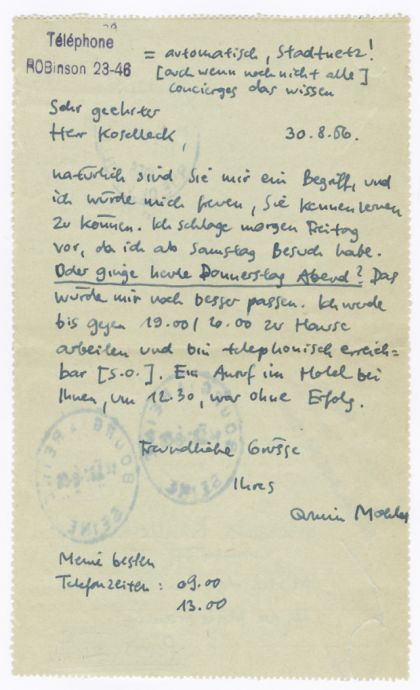 Téléphone
ROBinson 23-46
= automatisch, Stadtnetz!
[auch wenn noch nicht alle]
Concierges das wissen
Sehr geehrter
Herr Koselleck,
30.8.56.
natürlich sind Sie mir ein Begriff, und
ich würde mich freuen, Sie kennenlernen
zu können. Ich schlage morgen Freitag
vor, da ich ab Samstag Besuch habe.
Oder ginge heute Donnerstag Abend? Das
würde mir noch besser passen. Ich werde
bis gegen 19.00/20.00 zu Hause
arbeiten und bin telephonisch erreich=
bar [s.o.]. Ein Anruf im Hotel bei
Ihnen, um 12.30, war ohne Erfolg.
Freundliche Grüsse
Ihres
Armin Mohler
Meine besten
Telefonzeiten: 09.00
13.00
BOURG LA REINE
SEINE
BOURG LA REINE
SEINE